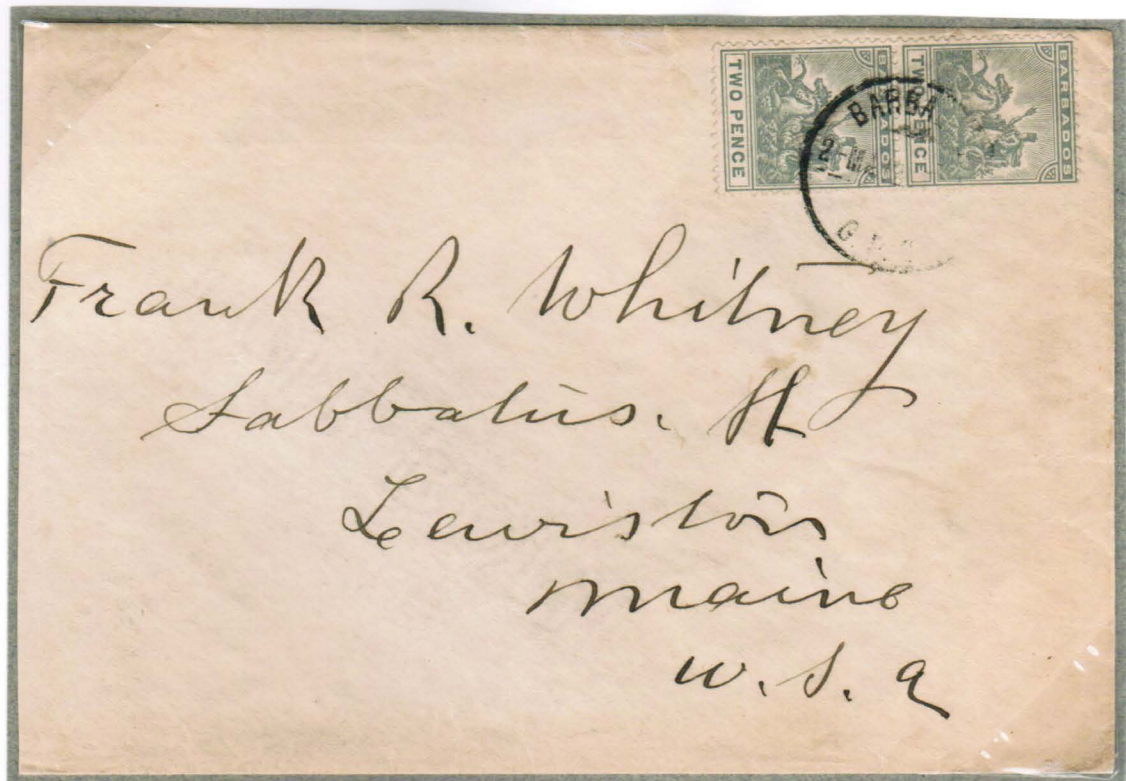 TWO PENCE
BARBADOS
PENCE
BARBADOS
BARBA
G.P.O
Frank R. Whitney
Sabbatus. St
Lewiston
Maine
U.S.A